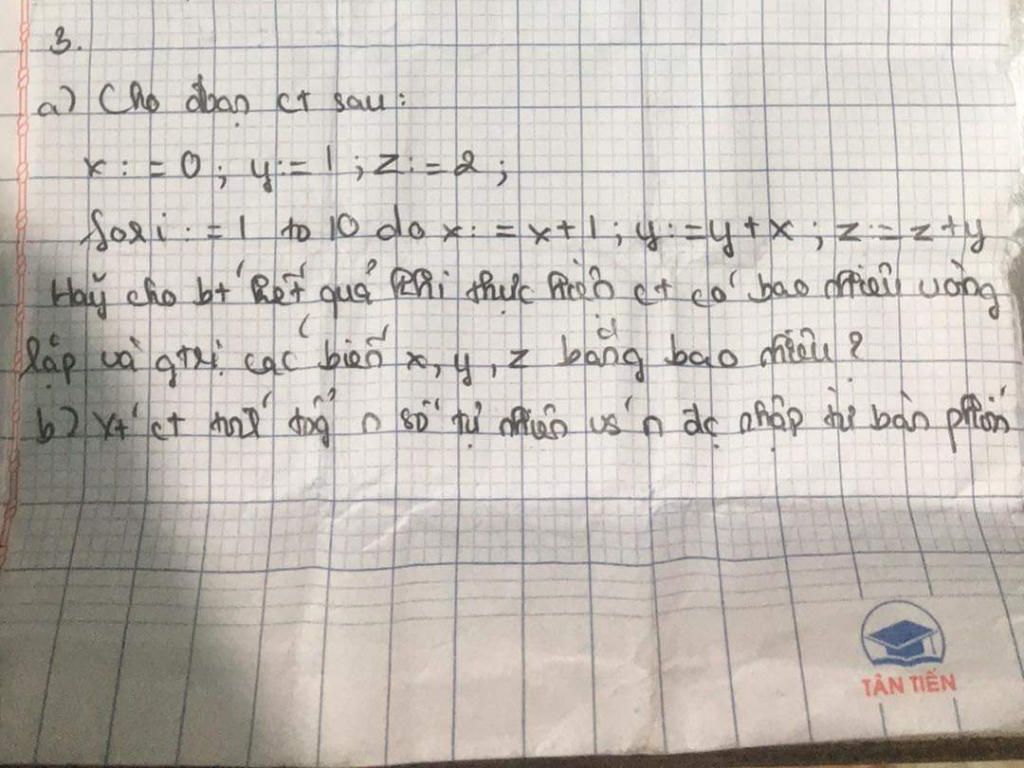 3.
a) Cho đoạn ct sau:
x:=0; y:=1; z:=2;
for i:=1 to 10 do x:=x+1; y:=y+x; z:=z+y
Hãy cho bt kết quả khi thực hiện ct có bao nhiêu vòng
lặp và gtrị các biến x, y, z bằng bao nhiêu?
b) Vt ct tính tổng n số tự nhiên vs n đc nhập từ bàn phím
TÂN TIẾN